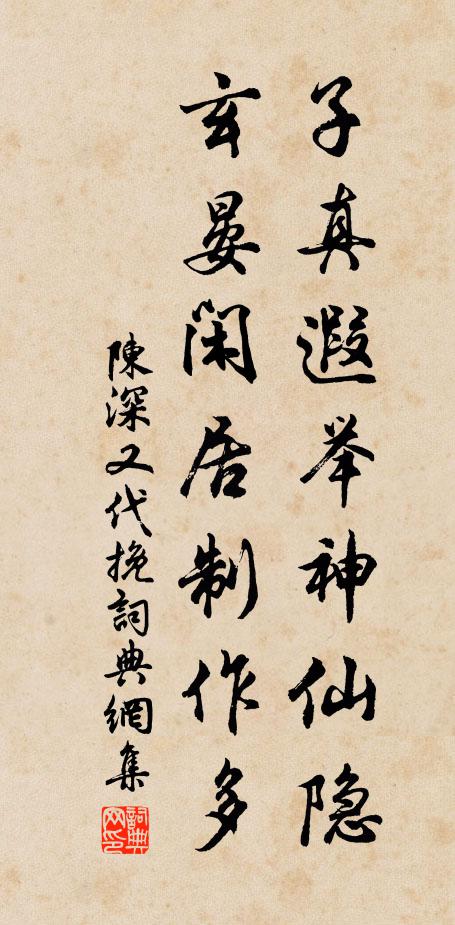 子真遐举神仙隐
玄晏闲居制作多
陳深又代挽詞典網集
詞典网印